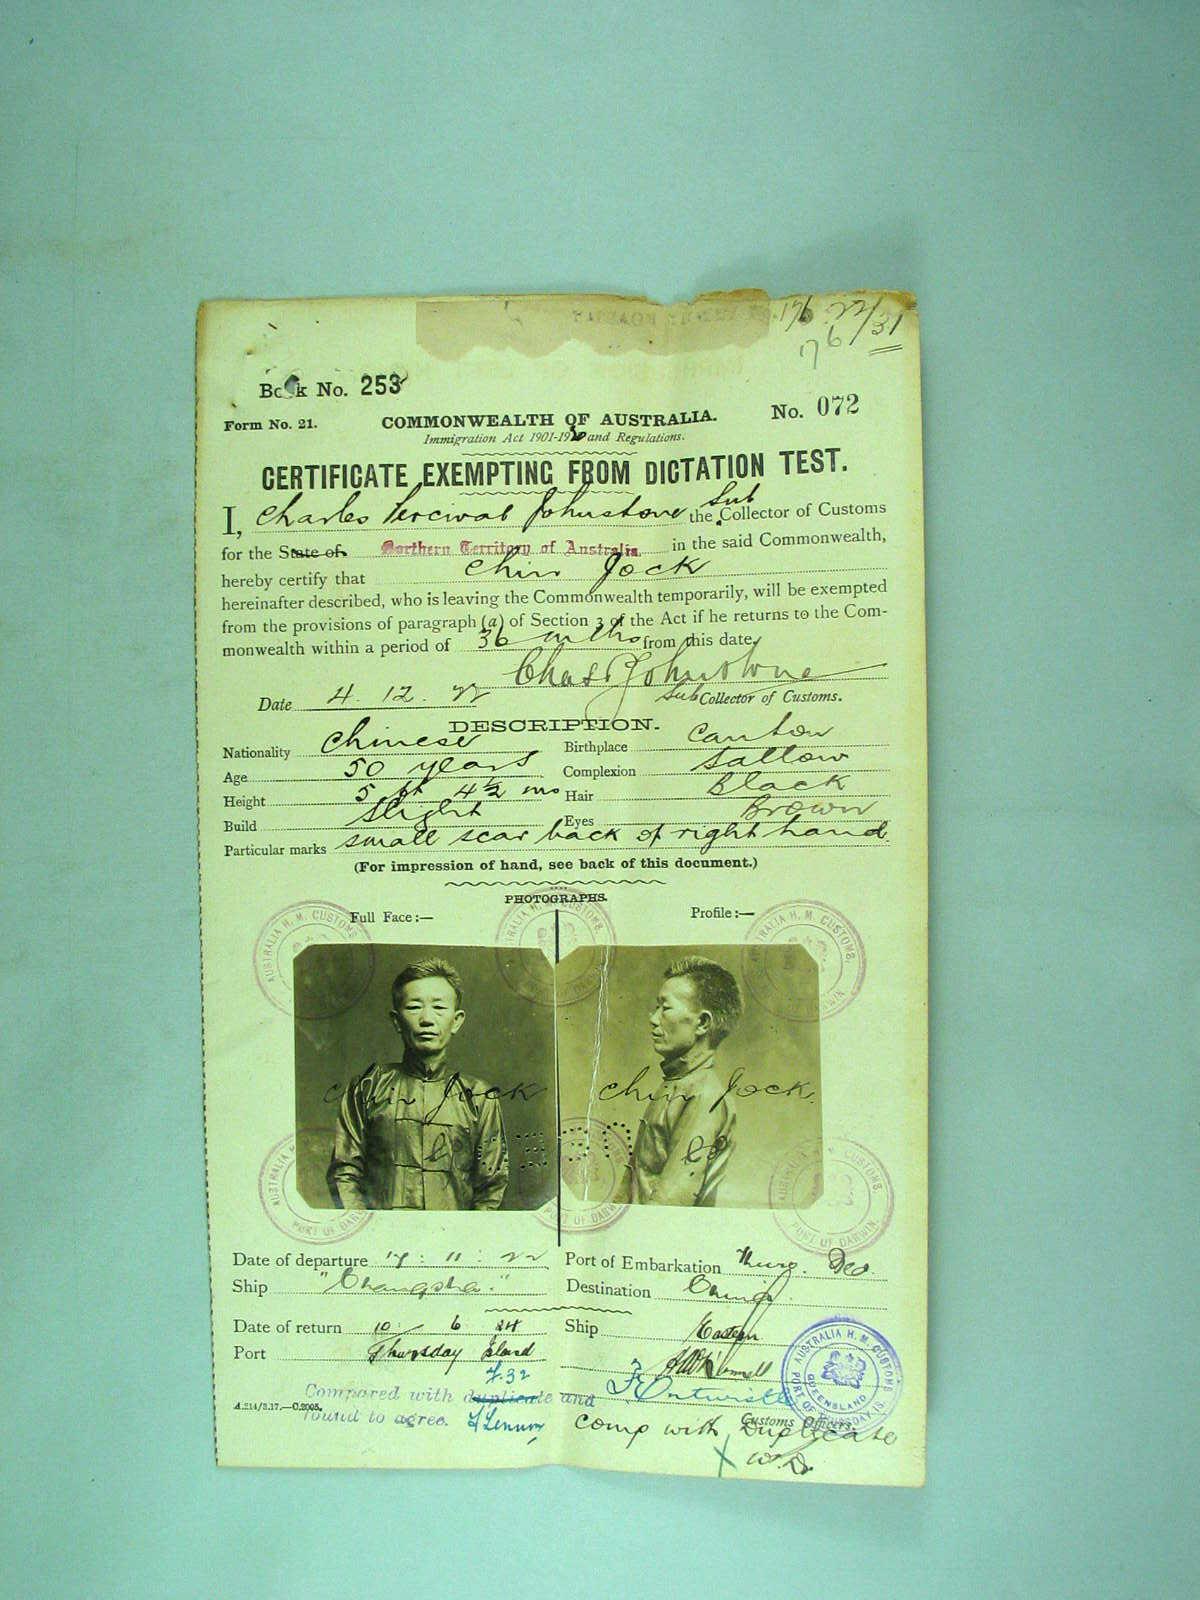 22/31
76
Book No. 253
Form No. 21.
COMMONWEALTH OF AUSTRALIA.
No. 072
Immigration Act 1901-1920 and Regulations.
CERTIFICATE EXEMPTING FROM DICTATION TEST.
I, Charles Percival Johnstone the Sub Collector of Customs
for the State of Northern Territory of Australia in the said Commonwealth,
hereby certify that Chin Jock
hereinafter described, who is leaving the Commonwealth temporarily, will be exempted
from the provisions of paragraph (a) of Section 3 of the Act if he returns to the Com-
monwealth within a period of 36 mths from this date.
Chas P Johnstone
Date 4. 12. 22
Sub Collector of Customs.
DESCRIPTION.
Nationality Chinese Birthplace Canton
Age 50 years Complexion Sallow
Height 5 ft 4½ ins Hair Black
Build Slight Eyes Brown
Particular marks small scar back of right hand.
(For impression of hand, see back of this document.)
PHOTOGRAPHS.
Full Face:— Profile:—
AUSTRALIA H. M. CUSTOMS.
PORT OF DARWIN
Chin Jock Chin Jock.
Date of departure 17 : 11 : 22 Port of Embarkation
Ship "Changsha." Destination China.
Date of return 10 6 24 Ship Eastern
Port Thursday Island
F. 32
Compared with duplicate and
found to agree.
F Entwistle
A.214/3.17.—C.2005.
Customs Officers.
Comp with Duplicate
AUSTRALIA H. M. CUSTOMS
QUEENSLAND
PORT OF THURSDAY IS.